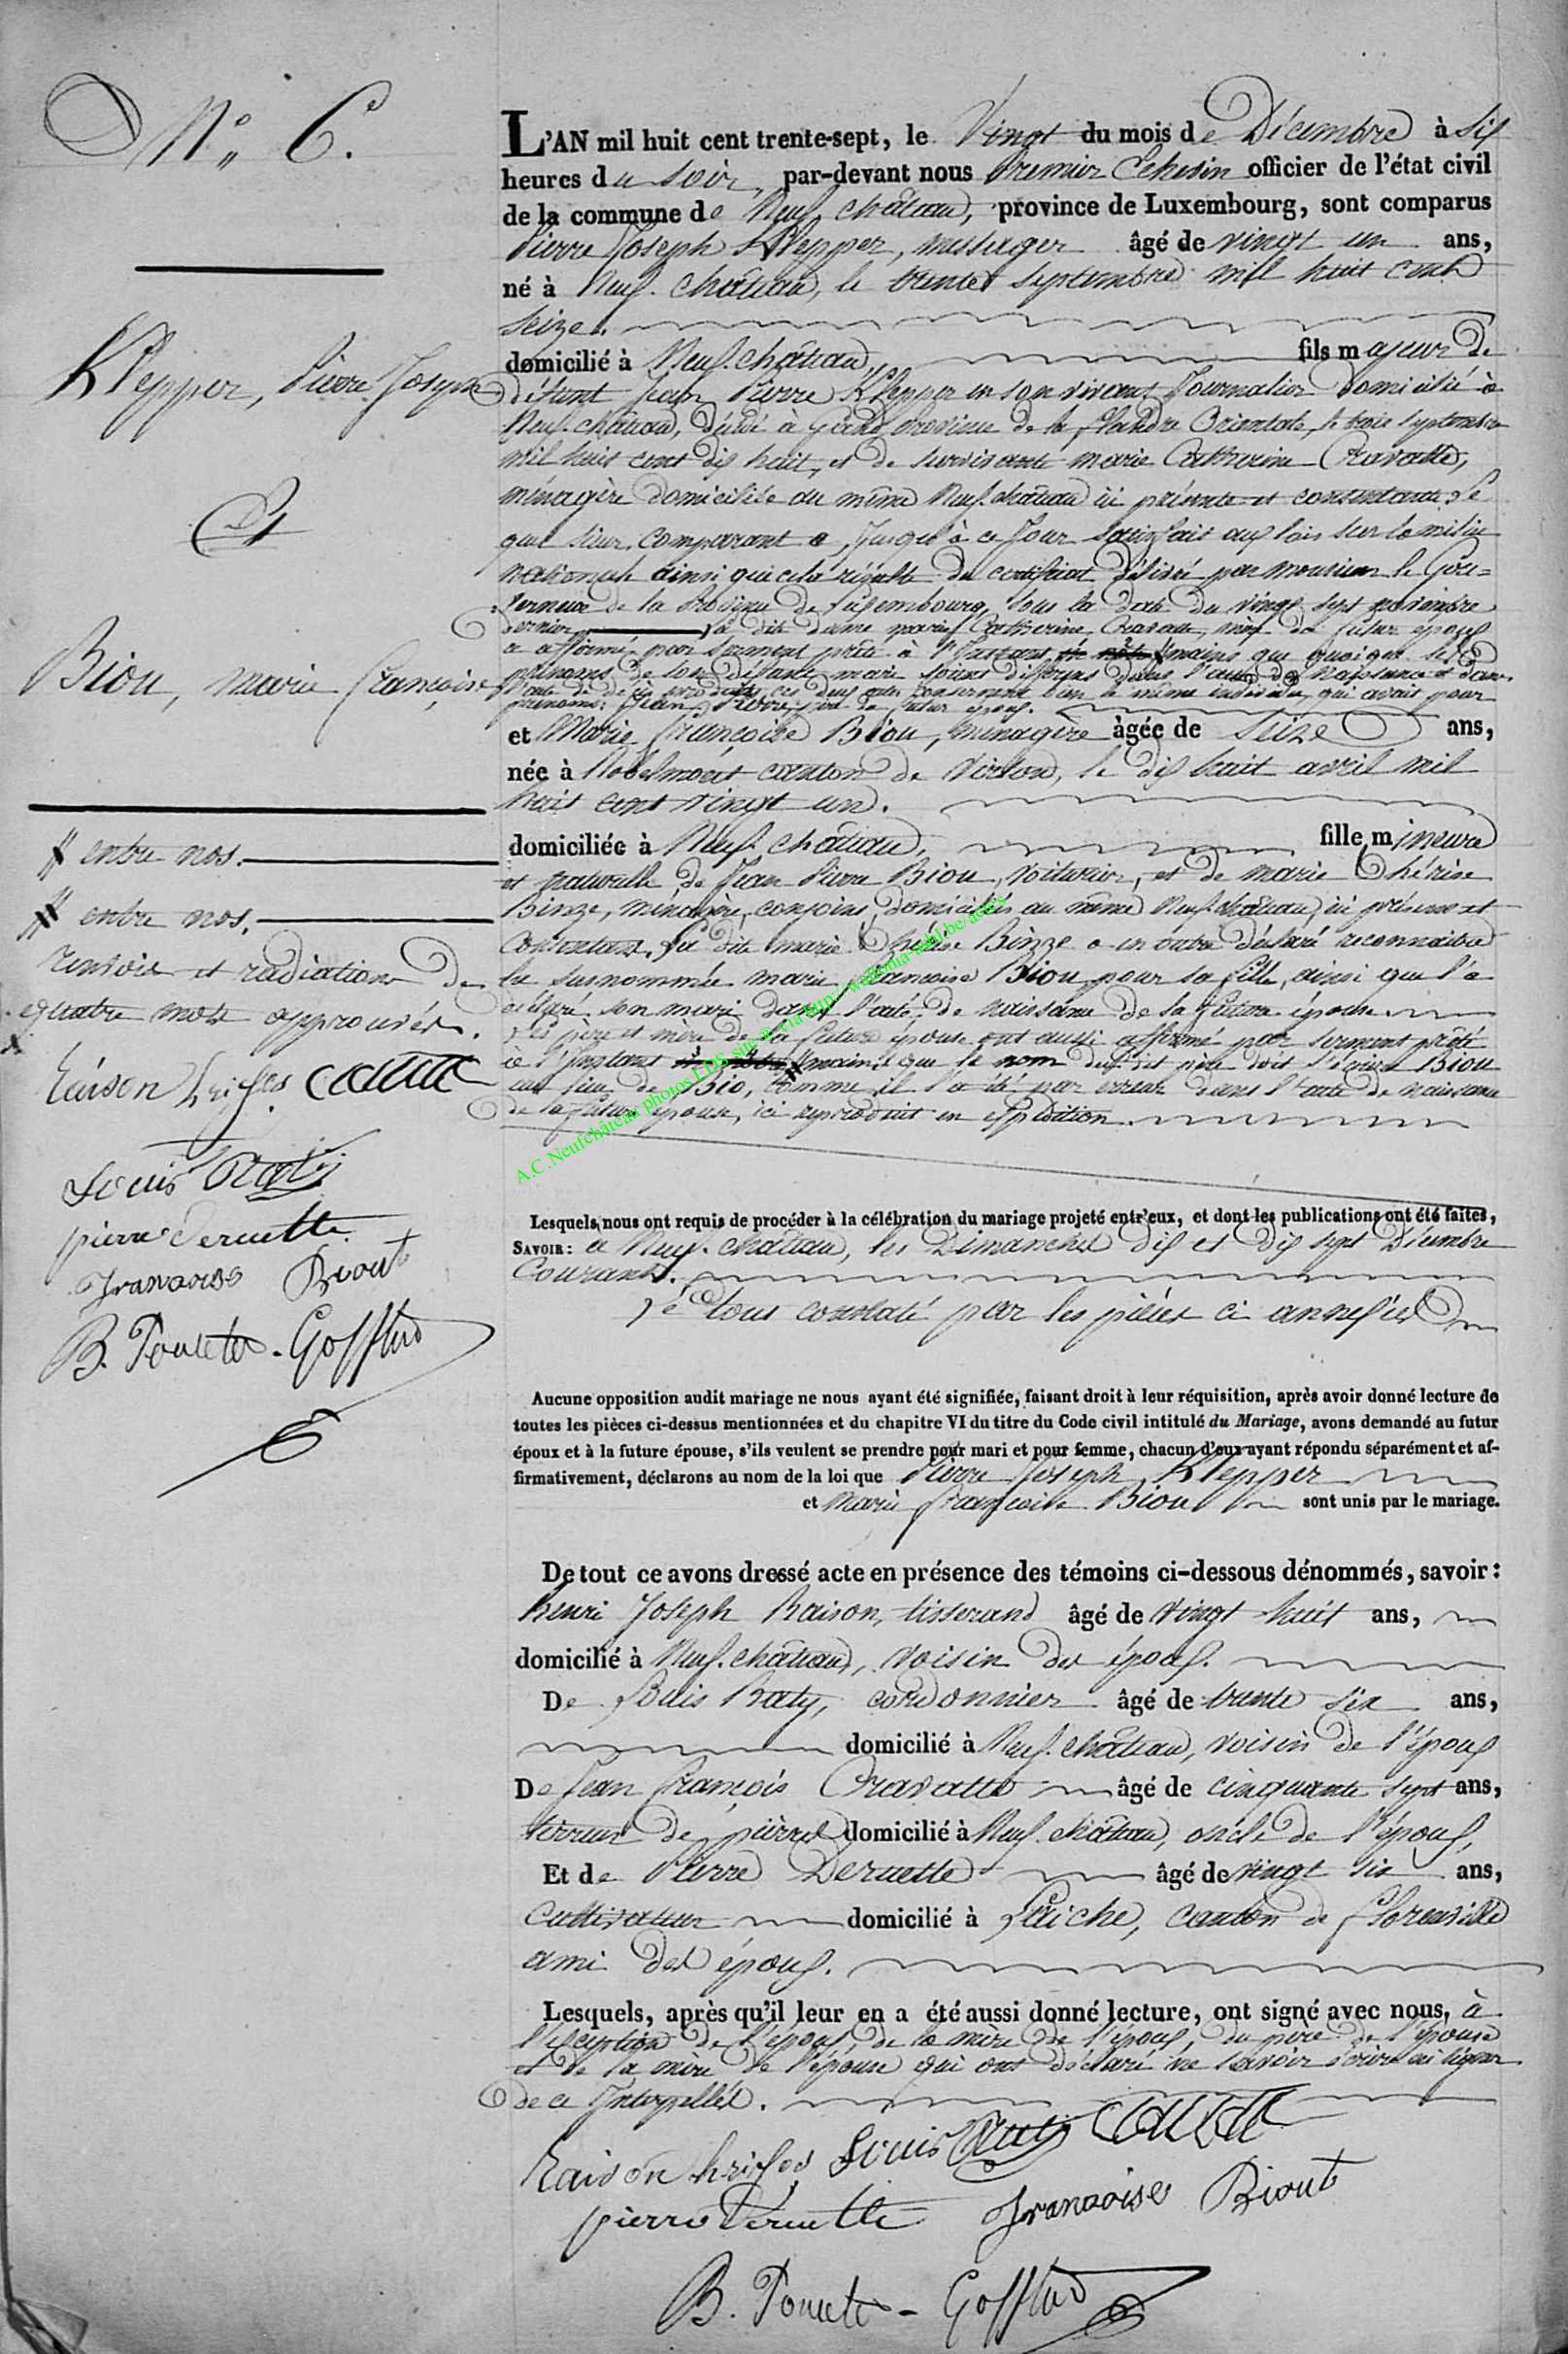 N° 6.
Klepper, Pierre Joseph
Et
Biou, marie françoise
# entre nos.
# entre nos.
renvois et radiation de
quatre mots approuvés.
Raison
Louis Raty
pierre Deruette
françoise Biout
B. Poncelet - Goffard
L'AN mil huit cent trente-sept, le Vingt du mois de Décembre à Six
heures du soir, par-devant nous Premier Echevin officier de l'état civil
de la commune de Neuf-château, province de Luxembourg, sont comparus
Pierre Joseph Klepper, messager âgé de vingt un ans,
né à Neuf-château, le trente septembre mil huit cent
seize.
domicilié à Neuf-château, fils majeur de
défunt Jean Pierre Klepper en son vivant Journalier domicilié à
Neuf-château, décédé à Gand Province de la flandre Orientale, le trois septembre
mil huit cent dix huit, et de survivante marie Catherine Cravatte,
ménagère domiciliée au même Neuf-château ici présente et consentante. Le
quel sieur comparant a Jusqu'à ce Jour satisfait aux lois sur la milice
nationale ainsi que cela résulte du certificat délivré par monsieur le Gou=
verneur de la Province de Luxembourg, sous la date du vingt sept novembre
dernier. La dite dame marie Catherine Cravatte, mère du futur époux
a affirmé par serment prêté à l'Instant # mains que quoique les
prénoms de son défunt mari soient différens dans l'acte de naissance et dans
ces deux actes concernent bien le même individu, qui avait pour
prénoms: Jean Pierre, père du futur époux.
et Marie françoise Biou, ménagère âgée de Seize ans,
née à Robelmont canton de Virton, le dix huit avril mil
huit cent vingt un.
domiciliée à Neuf-château, fille mineure
et naturelle de Jean Pierre Biou, voiturier, et de marie Thérèse
Binze, ménagère, conjoins, domiciliés au même Neuf-château, ici présens et
consentans. La dite marie Thérèse Binze a en outre déclaré reconnaitre
la susnommée marie françoise Biou pour sa fille, ainsi que l'a
déclaré son mari dans l'acte de naissance de la future épouse.
Les père et mère de la future épouse ont aussi affirmé par serment prêté
à l'Instant # mains que le nom du dit père doit s'écrire Biou
au lieu de Bio, comme il l'a été par erreur dans l'acte de naissance
de la future épouse, ici reproduit en expédition.
A.C.Neufchâteau photos
Lesquels nous ont requis de procéder à la célébration du mariage projeté entr'eux, et dont les publications ont été faites,
SAVOIR: à Neuf-château, les Dimanches dix et dix sept Décembre
Courant.
Le tout constaté par les pièces ci annexées
Aucune opposition audit mariage ne nous ayant été signifiée, faisant droit à leur réquisition, après avoir donné lecture de
toutes les pièces ci-dessus mentionnées et du chapitre VI du titre du Code civil intitulé du Mariage, avons demandé au futur
époux et à la future épouse, s'ils veulent se prendre pour mari et pour femme, chacun d'eux ayant répondu séparément et af-
firmativement, déclarons au nom de la loi que Pierre Joseph Klepper
et Marie françoise Biou sont unis par le mariage.
De tout ce avons dressé acte en présence des témoins ci-dessous dénommés, savoir:
henri Joseph Raison, tisserand âgé de vingt huit ans,
domicilié à Neuf-château, voisin des époux.
De Louis Raty, cordonnier âgé de trente six ans,
domicilié à Neuf-château, voisin de l'époux
De Jean François Cravatte âgé de cinquante sept ans,
tireur de pierres domicilié à Neuf-château, oncle de l'époux,
Et de Pierre Deruette âgé de vingt six ans,
Cultivateur domicilié à Laiche, canton de florenville
ami des époux.
Lesquels, après qu'il leur en a été aussi donné lecture, ont signé avec nous, à
l'exception de l'époux, de la mère de l'époux, du père de l'épouse
et de la mère de l'épouse qui ont déclaré ne savoir écrire ni signer
de ce Interpellés.
Raison Louis Raty
pierre Deruette françoise Biout
B. Poncelet - Goffard